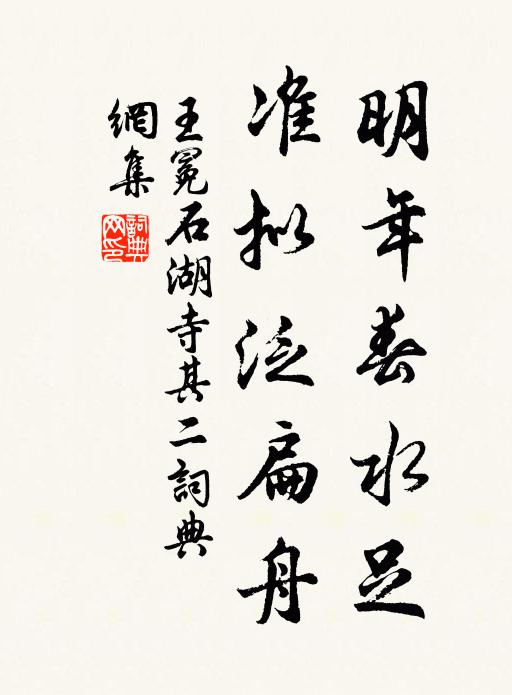 明年春水足
准拟泛扁舟
王冕石湖寺其二詞典
網集
詞典網印